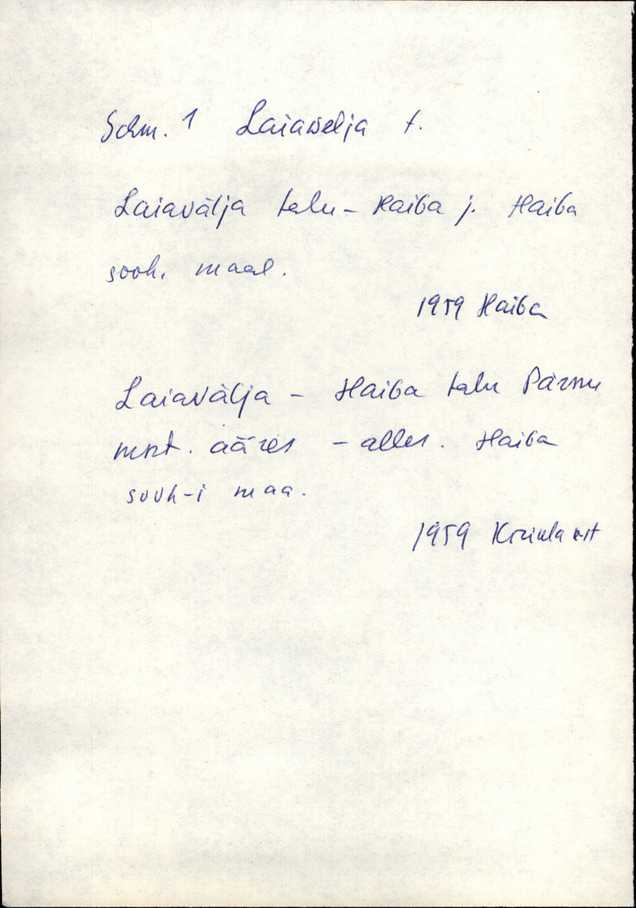 Schm. 1 Laiawelja t.
Laiavälja talu – Haiba j. Haiba
sovh. maal.
1959 Haiba
Laiavälja – Haiba talu Pärnu
mnt. ääres – alles. Haiba
sovh-i maa.
1959